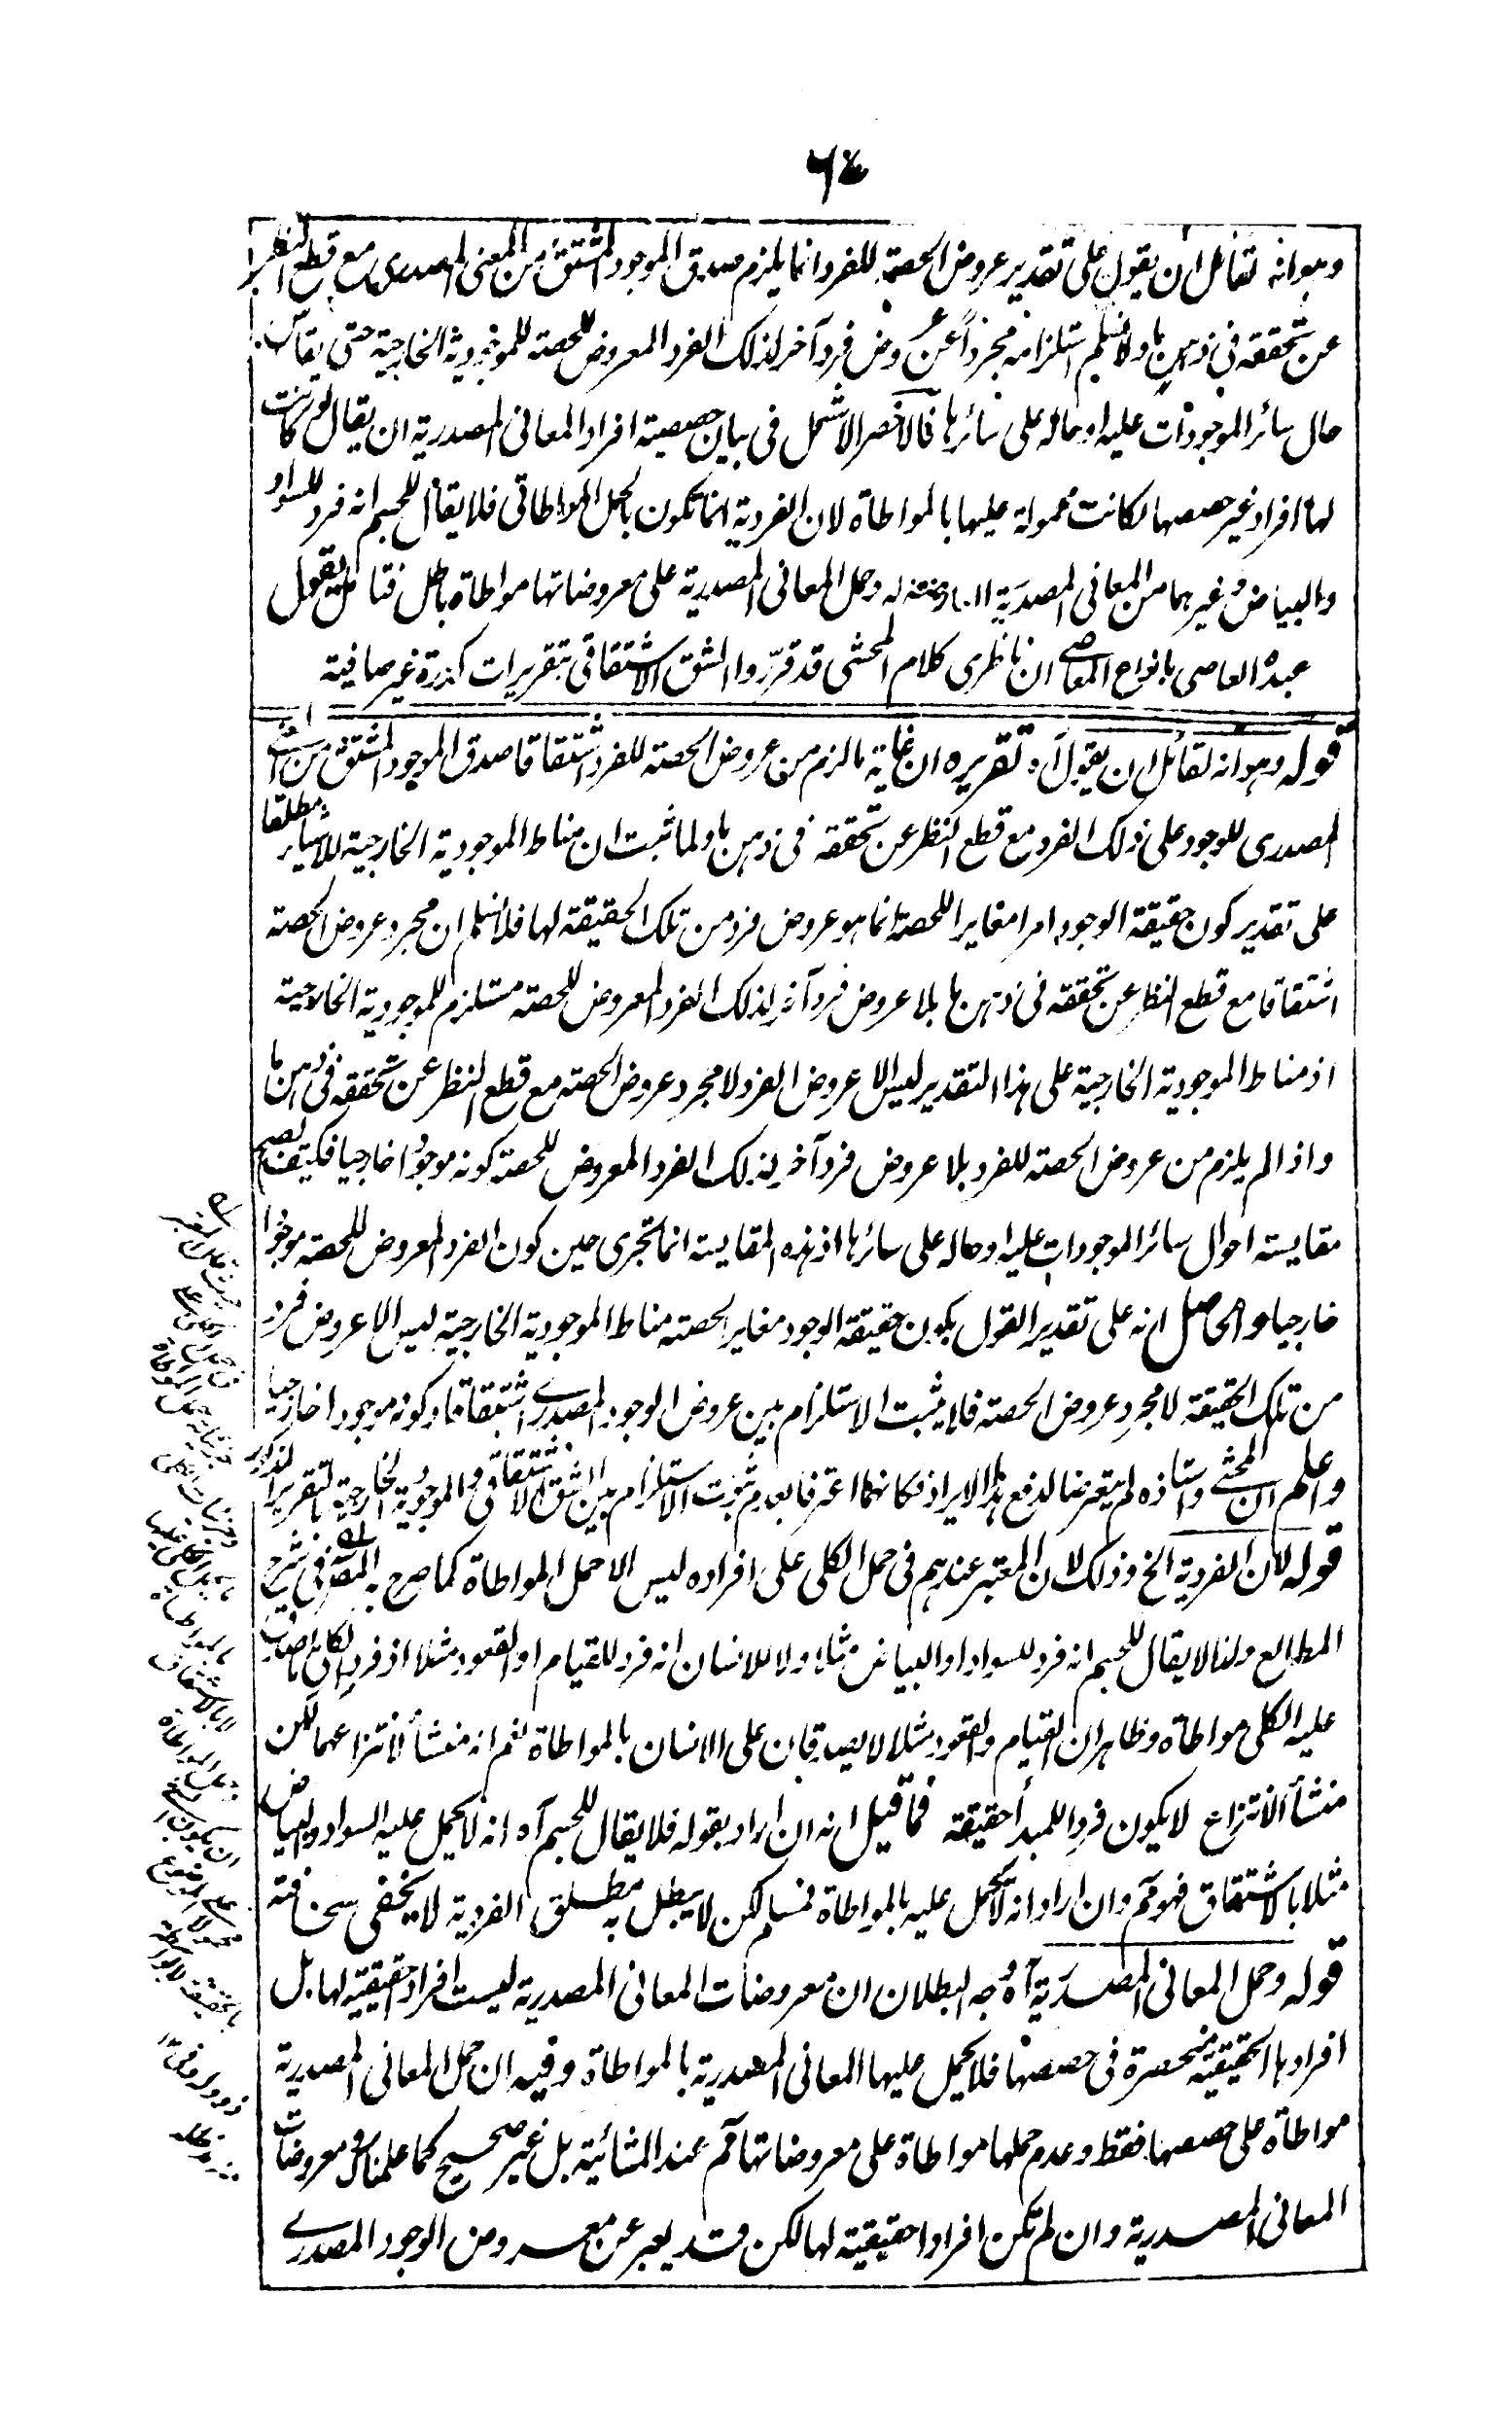 وهو انه لقائل ان يقول على تقدير عروض الحصة للفرد انما يلزم صدق الموجود المشتق من المعنى المصدرى مع قطع النظر
عن تحققه فى ذهن ما ولا نسلم استلزامه مجردا عن عروض فرد آخر لذلك الفرد المعروض للحصة للموجودية الخارجية حتى يقاس
حال سائر الموجودات عليه او حاله على سائرها فالاخصر الاشمل فى بيان حصصية افراد المعانى المصدرية ان يقال لو كانت
لها افراد غير حصصها لكانت محمولة عليها بالمواطاة لان الفردية انما تكون بالحمل المواطاتى فلا يقال للجسم انه فرد للسواد
والبياض وغيرهما من المعانى المصدرية العارضة له وحمل المعانى المصدرية على معروضاتها مواطاة باطل فتامل يقول
عبده العاصى بانواع المعاصى ان ناظرى كلام المحشى قد قرّروا الشق الاشتقاقى بتقريرات كدرة غير صافية
قوله وهو انه لقائل ان يقول آه تقريره ان غاية ما لزم من عروض الحصة للفرد اشتقاقا صدق الموجود المشتق من المعنى
المصدرى للوجود على ذلك الفرد مع قطع النظر عن تحققه فى ذهن ما ولما ثبت ان مناط الموجودية الخارجية للاشياء مطلقا
على تقدير كون حقيقة الوجود امرا مغايرا للحصة انما هو عروض فرد من تلك الحقيقة لها فلا نسلم ان مجرد عروض الحصة
اشتقاقا مع قطع النظر عن تحققه فى ذهن ما بلا عروض فرد آخر لذلك الفرد المعروض للحصة مستلزم للموجودية الخارجية
اذ مناط الموجودية الخارجية على هذا التقدير ليس الا عروض الفرد لا مجرد عروض الحصة مع قطع النظر عن تحققه فى ذهن ما
واذا لم يلزم من عروض الحصة للفرد بلا عروض فرد آخر لذلك الفرد المعروض للحصة كونه موجودا خارجيا فكيف تصح
مقايسة احوال سائر الموجودات عليه او حاله على سائرها اذ هذه المقايسة انما تجرى حين كون الفرد المعروض للحصة موجودا
خارجيا والحاصل انه على تقدير القول بكون حقيقة الوجود مغاير الحصة مناط الموجودية الخارجية ليس الا عروض فرد
من تلك الحقيقة لا مجرد عروض الحصة فلا يثبت الاستلزام بين عروض الوجود المصدرى اشتقاقا وكونه موجودا خارجيا
واعلم ان المحشى واستاذه لم يتعرضا لدفع هذا الايراد فكانهما اعترفا بعدم ثبوت الاستلزام بين الشق الاشتقاقى والموجودية الخارجية بالتقرير المذكور
قوله لان الفردية الخ وذلك لان المعتبر عندهم فى حمل الكلى على افراده ليس الا حمل المواطاة كما صرح به المصنف فى شرح
المطالع ولذا لا يقال للجسم انه فرد للسواد او البياض مثلا ولا للانسان انه فرد للقيام او القعود مثلا اذ فرد الكلى ما صدق
عليه الكلى مواطاة وظاهر ان القيام والقعود مثلا لا يصدقان على الانسان بالمواطاة نعم انه منشأ لانتزاعهما لكن
منشأ الانتزاع لا يكون فردا للمبدأ حقيقة فما قيل انه ان اراد بقوله فلا يقال للجسم آه انه لا يحمل عليه السواد والبياض
مثلا بالاشتقاق فهو مم وان اراد انه لا يحمل عليه بالمواطاة فمسلم لكن لا يبطل به مطلق الفردية لا يخفى سخافته
قوله وحمل المعانى المصدرية آه وجه البطلان ان معروضات المعانى المصدرية ليست افرادا حقيقية لها بل
افرادها الحقيقية منحصرة فى حصصها فلا يحمل عليها المعانى المصدرية بالمواطاة وفيه ان حمل المعانى المصدرية
مواطاة على حصصها فقط وعدم حملها مواطاة على معروضاتها مم عند المشائية بل غير صحيح كما علمناك ومعروضات
المعانى المصدرية وان لم تكن افرادا حقيقية لها لكن قد يعبر عن معروض الوجود المصدرى